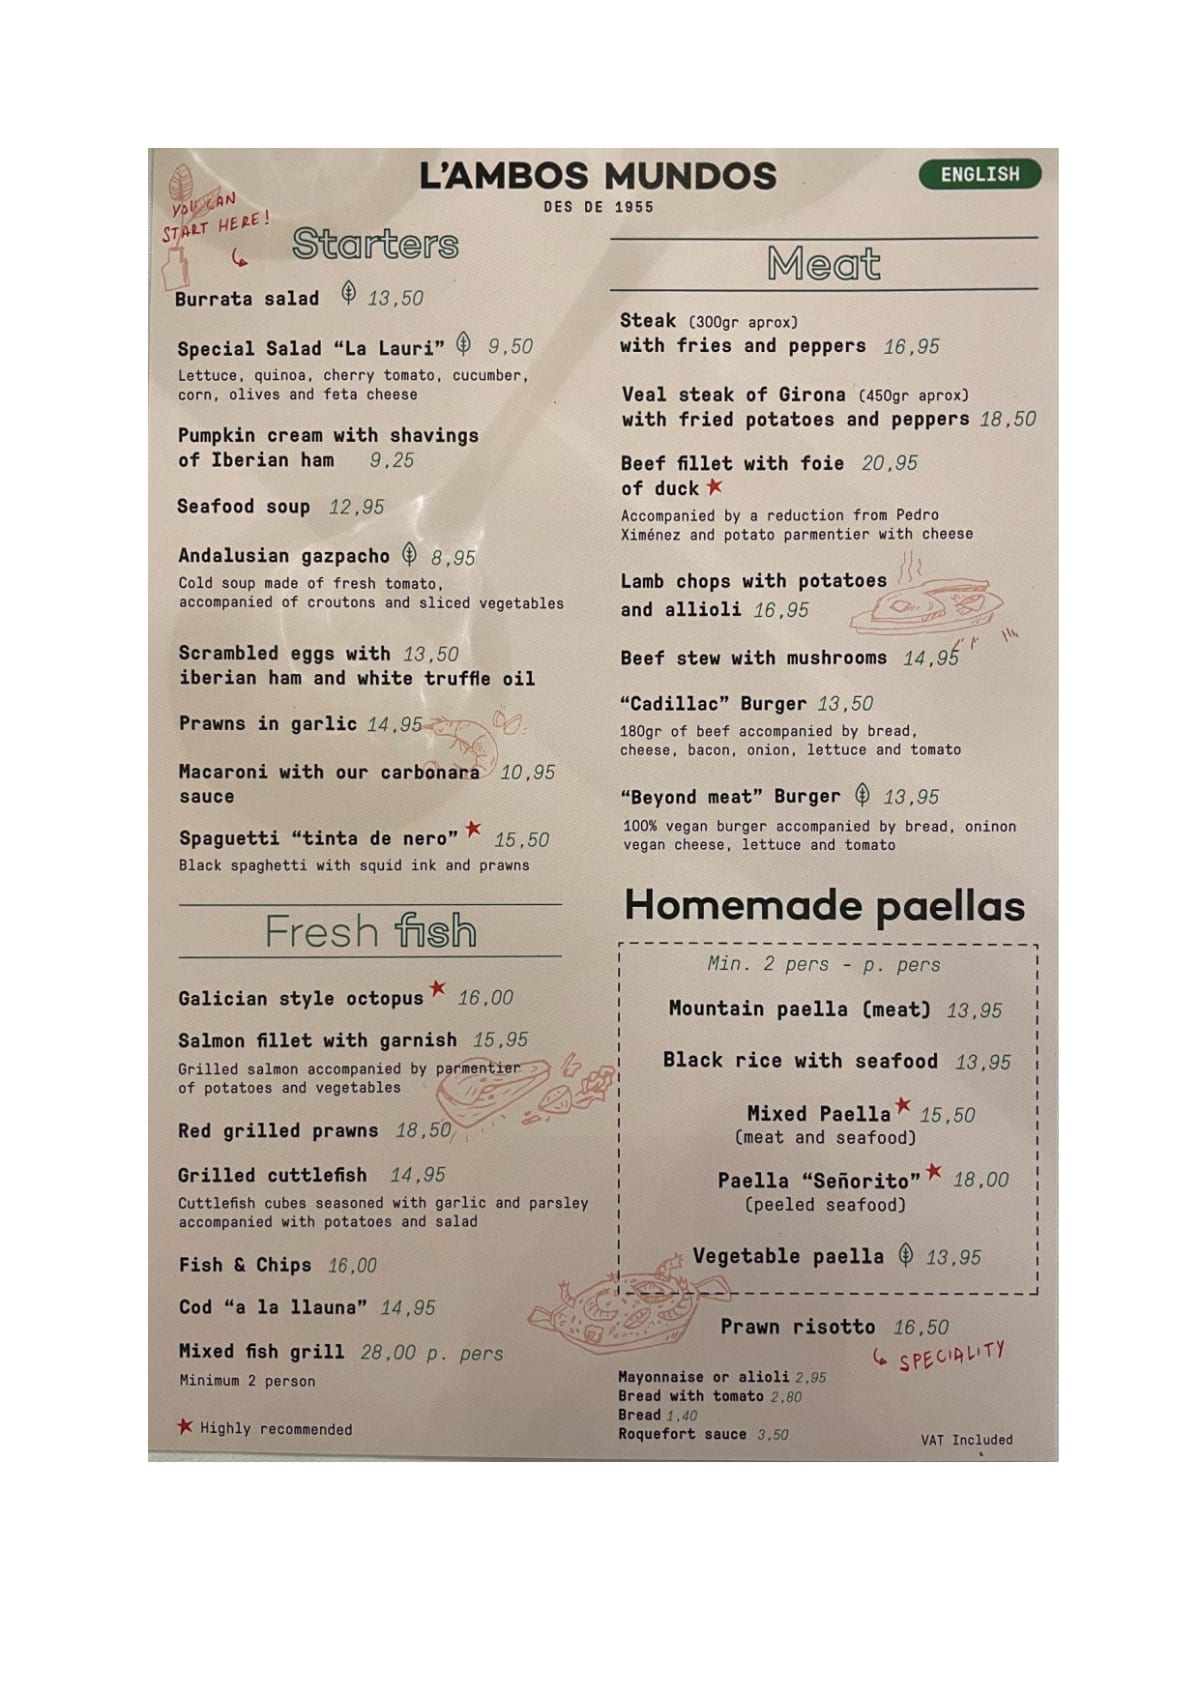 L'AMBOS MUNDOS
DES DE 1955
ENGLISH
YOU CAN
START HERE!
Starters
Burrata salad 13,50
Special Salad “La Lauri” 9,50
Lettuce, quinoa, cherry tomato, cucumber,
corn, olives and feta cheese
Pumpkin cream with shavings
of Iberian ham 9,25
Seafood soup 12,95
Andalusian gazpacho 8,95
Cold soup made of fresh tomato,
accompanied of croutons and sliced vegetables
Scrambled eggs with 13,50
iberian ham and white truffle oil
Prawns in garlic 14,95
Macaroni with our carbonara 10,95
sauce
Spaguetti “tinta de nero” 15,50
Black spaghetti with squid ink and prawns
Fresh fish
Galician style octopus 16,00
Salmon fillet with garnish 15,95
Grilled salmon accompanied by parmentier
of potatoes and vegetables
Red grilled prawns 18,50
Grilled cuttlefish 14,95
Cuttlefish cubes seasoned with garlic and parsley
accompanied with potatoes and salad
Fish & Chips 16,00
Cod “a la llauna” 14,95
Mixed fish grill 28,00 p. pers
Minimum 2 person
Highly recommended
Meat
Steak (300gr aprox)
with fries and peppers 16,95
Veal steak of Girona (450gr aprox)
with fried potatoes and peppers 18,50
Beef fillet with foie 20,95
of duck
Accompanied by a reduction from Pedro
Ximénez and potato parmentier with cheese
Lamb chops with potatoes
and allioli 16,95
Beef stew with mushrooms 14,95
“Cadillac” Burger 13,50
180gr of beef accompanied by bread,
cheese, bacon, onion, lettuce and tomato
“Beyond meat” Burger 13,95
100% vegan burger accompanied by bread, oninon
vegan cheese, lettuce and tomato
Homemade paellas
Min. 2 pers - p. pers
Mountain paella (meat) 13,95
Black rice with seafood 13,95
Mixed Paella 15,50
(meat and seafood)
Paella “Señorito” 18,00
(peeled seafood)
Vegetable paella 13,95
Prawn risotto 16,50
SPECIALITY
Mayonnaise or alioli 2,95
Bread with tomato 2,80
Bread 1,40
Roquefort sauce 3,50
VAT Included